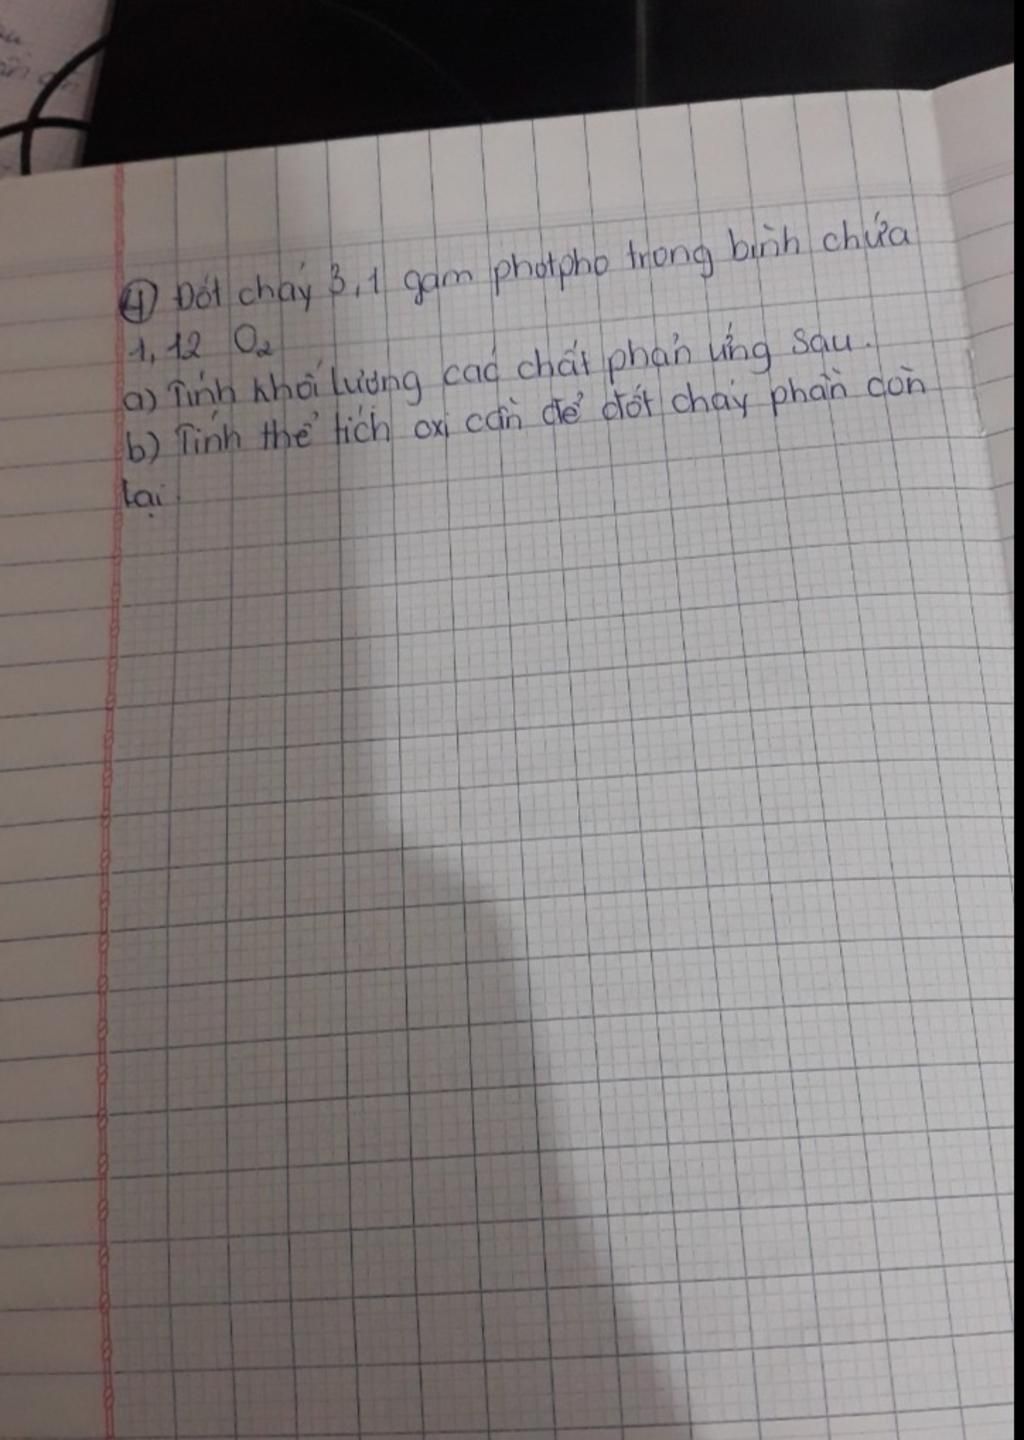 ④ Đốt cháy 3,1 gam photpho trong bình chứa
1,12 O₂
a) Tính khối lượng các chất phản ứng sau.
b) Tính thể tích oxi cần để đốt cháy phần còn
lại.